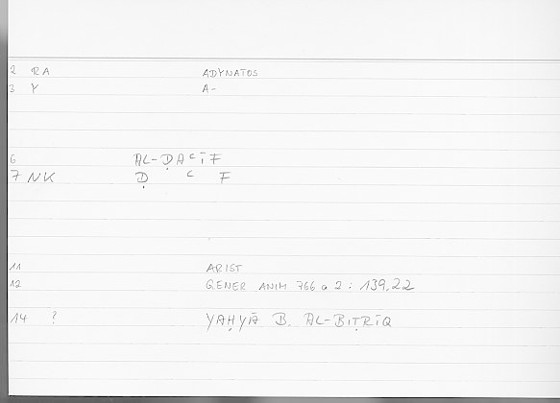 2 RA ADYNATOS
3 Y A-
6 AL-ḌAʿĪF
7 NK Ḍ ʿ F
11 ARIST
12 GENER ANIM 766 a 2 : 139,22
14 ? YAḤYĀ B. AL-BIṬRĪQ